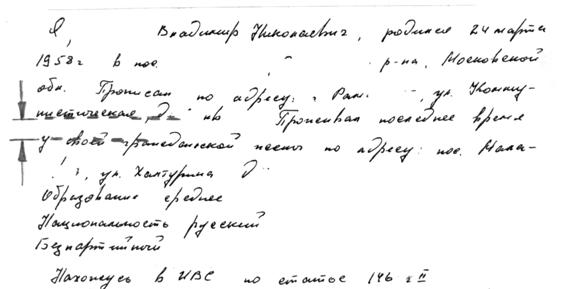 Я, Владимир Николаевич, родился 24 марта
1958 г в пос. р-на, Московской
обл. Прописан по адресу: г. Рам. , ул. Коммунистическая д. кв Проживал последнее время
у своей гражданской жены по адресу: пос. Мала-
, ул. Халтурина д.
Образование среднее
Национальность русский
Безпартийный
Нахожусь в ИВС по статье 146 ч II